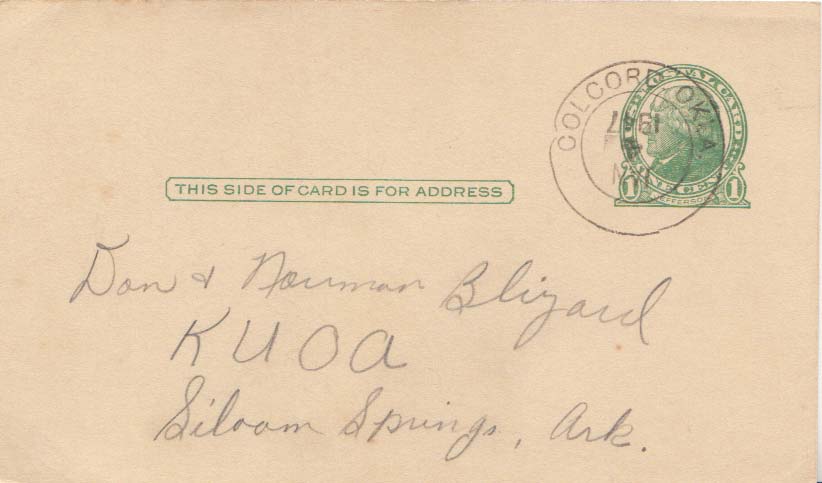 COLCORD, OKLA
U.S. POSTAL CARD
1 1
JEFFERSON
THIS SIDE OF CARD IS FOR ADDRESS
Don & Norman Blizard
KUOA
Siloam Springs, Ark.